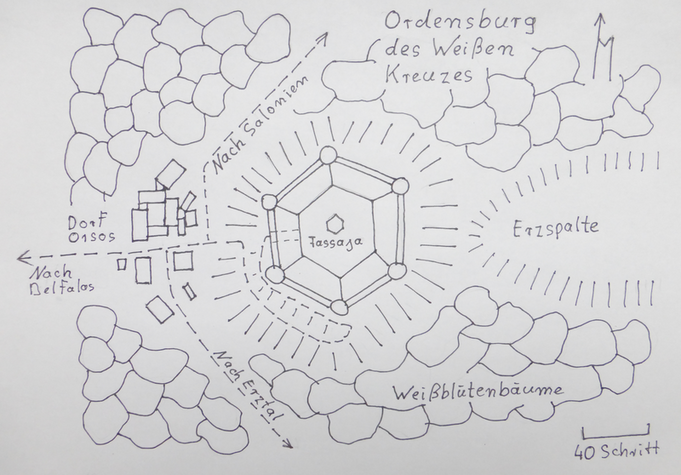 Ordensburg
des Weißen
Kreuzes
N
Nach Salonien
Dorf
Orsos
Tassaja
Erzspalte
Nach
Delfalos
Nach Erztal
Weißblütenbäume
40 Schritt